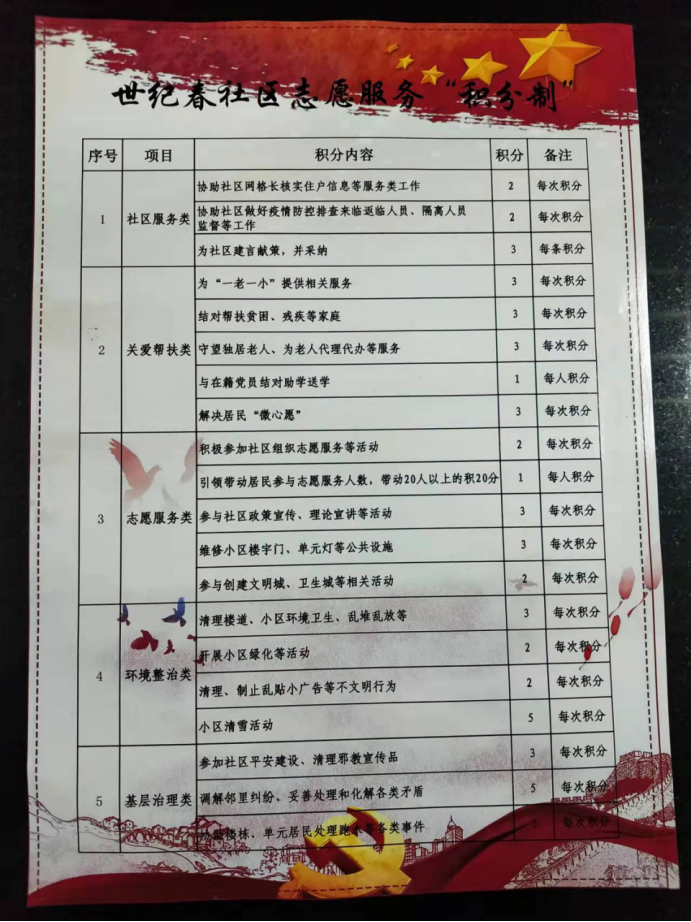 世纪春社区志愿服务“积分制”
序号 项目 积分内容 积分 备注
1 社区服务类
协助社区网格长核实住户信息等服务类工作 2 每次积分
协助社区做好疫情防控排查来临返临人员、隔离人员
监督等工作 2 每次积分
为社区建言献策，并采纳 3 每条积分
2 关爱帮扶类
为“一老一小”提供相关服务 3 每次积分
结对帮扶贫困、残疾等家庭 3 每次积分
守望独居老人、为老人代理代办等服务 3 每次积分
与在籍党员结对助学送学 1 每人积分
解决居民“微心愿” 3 每次积分
3 志愿服务类
积极参加社区组织志愿服务等活动 2 每次积分
引领带动居民参与志愿服务人数，带动20人以上的积20分 1 每人积分
参与社区政策宣传、理论宣讲等活动 3 每次积分
维修小区楼宇门、单元灯等公共设施 3 每次积分
参与创建文明城、卫生城等相关活动 2 每次积分
4 环境整治类
清理楼道、小区环境卫生、乱堆乱放等 3 每次积分
开展小区绿化等活动 2 每次积分
清理、制止乱贴小广告等不文明行为 2 每次积分
小区清雪活动 5 每次积分
5 基层治理类
参加社区平安建设、清理邪教宣传品 3 每次积分
调解邻里纠纷、妥善处理和化解各类矛盾 5 每次积分
楼栋、单元居民处理跑水等各类事件 每次积分